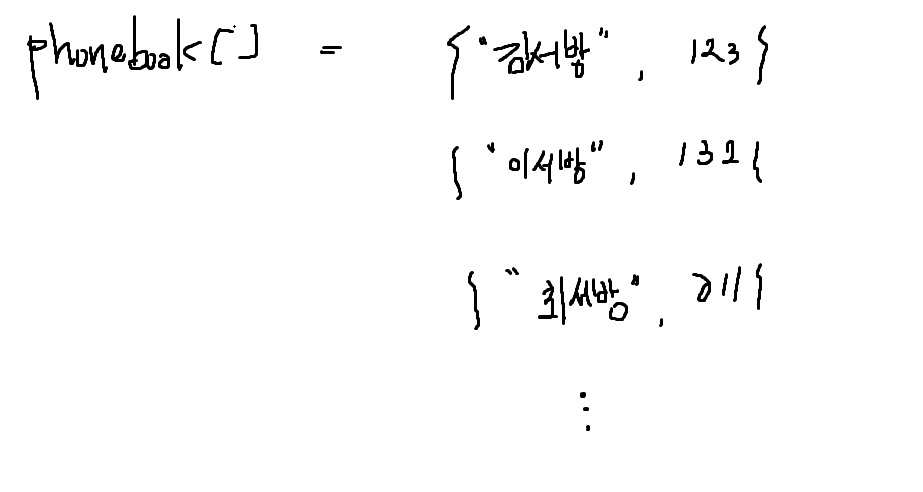 phonebook[] = {"김서방", 123}
{"이서방", 131}
{"최서방", 211}
⋮